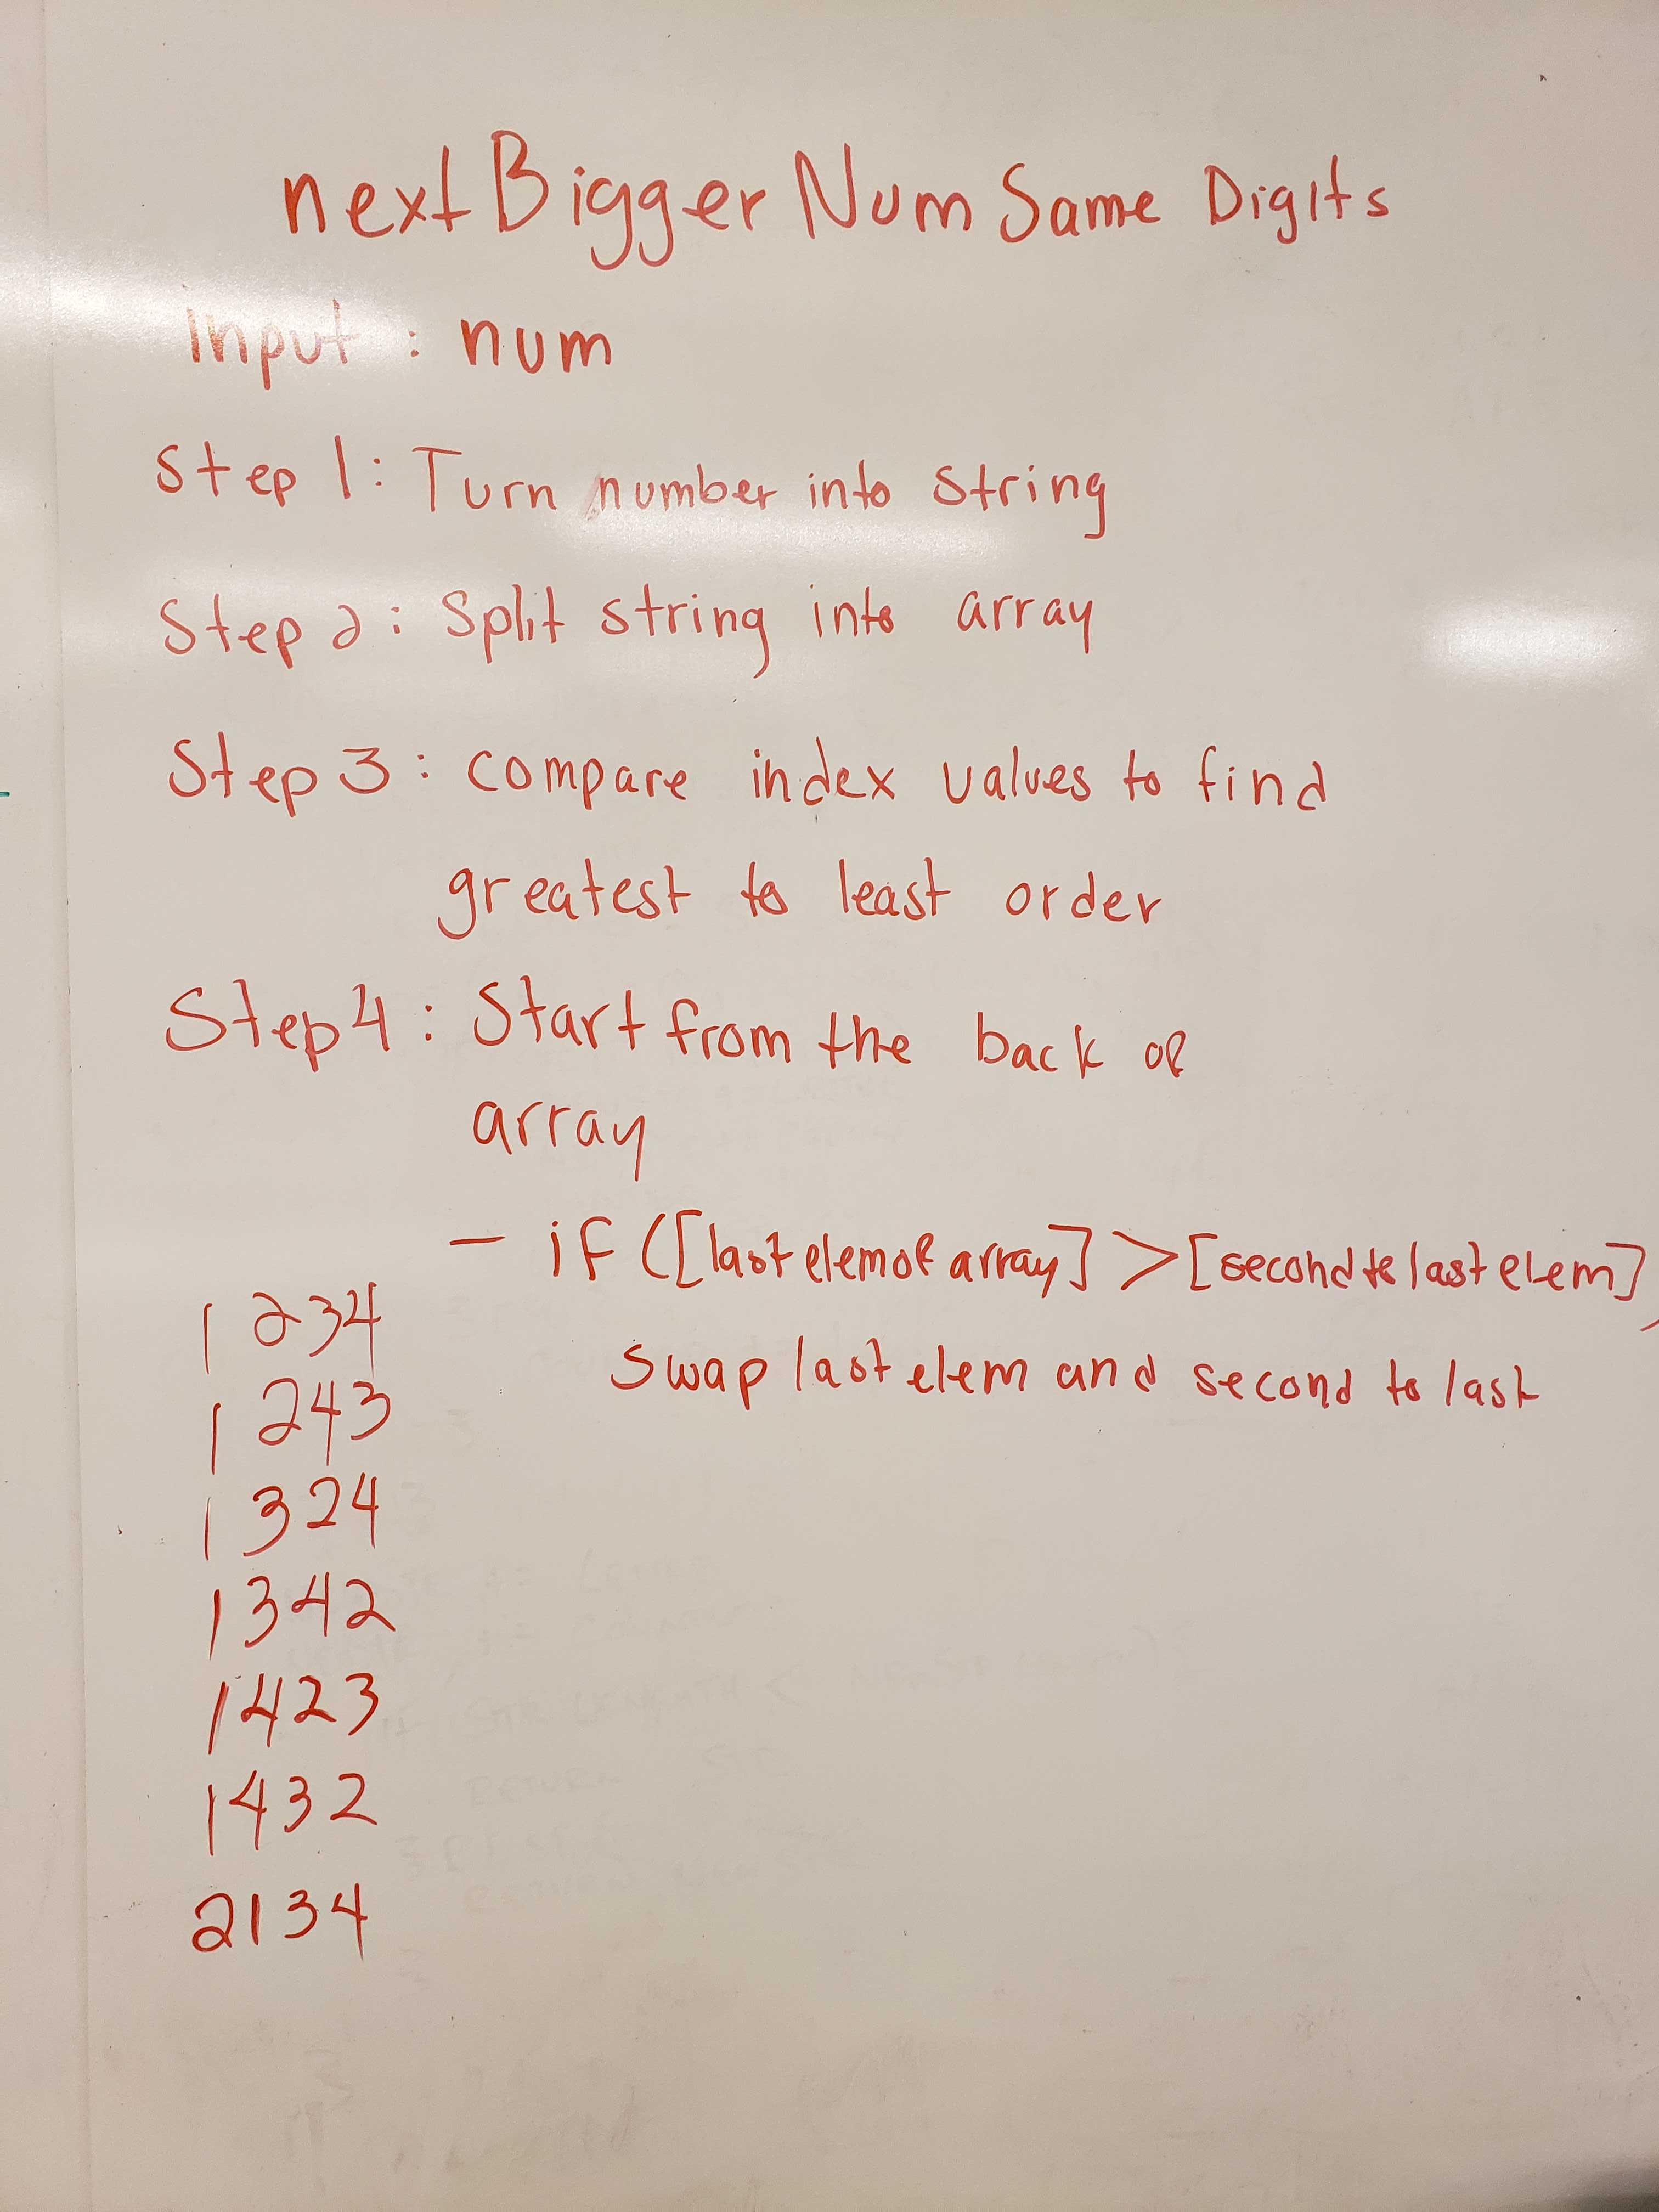 nextBiggerNumSame Digits
input : num
Step 1: Turn number into string
Step 2: Split string into array
Step 3: compare index values to find
greatest to least order
Step 4: Start from the back of
array
- if ([last elem of array] > [second to last elem]
swap last elem and second to last
1234
1243
1324
1342
1423
1432
2134